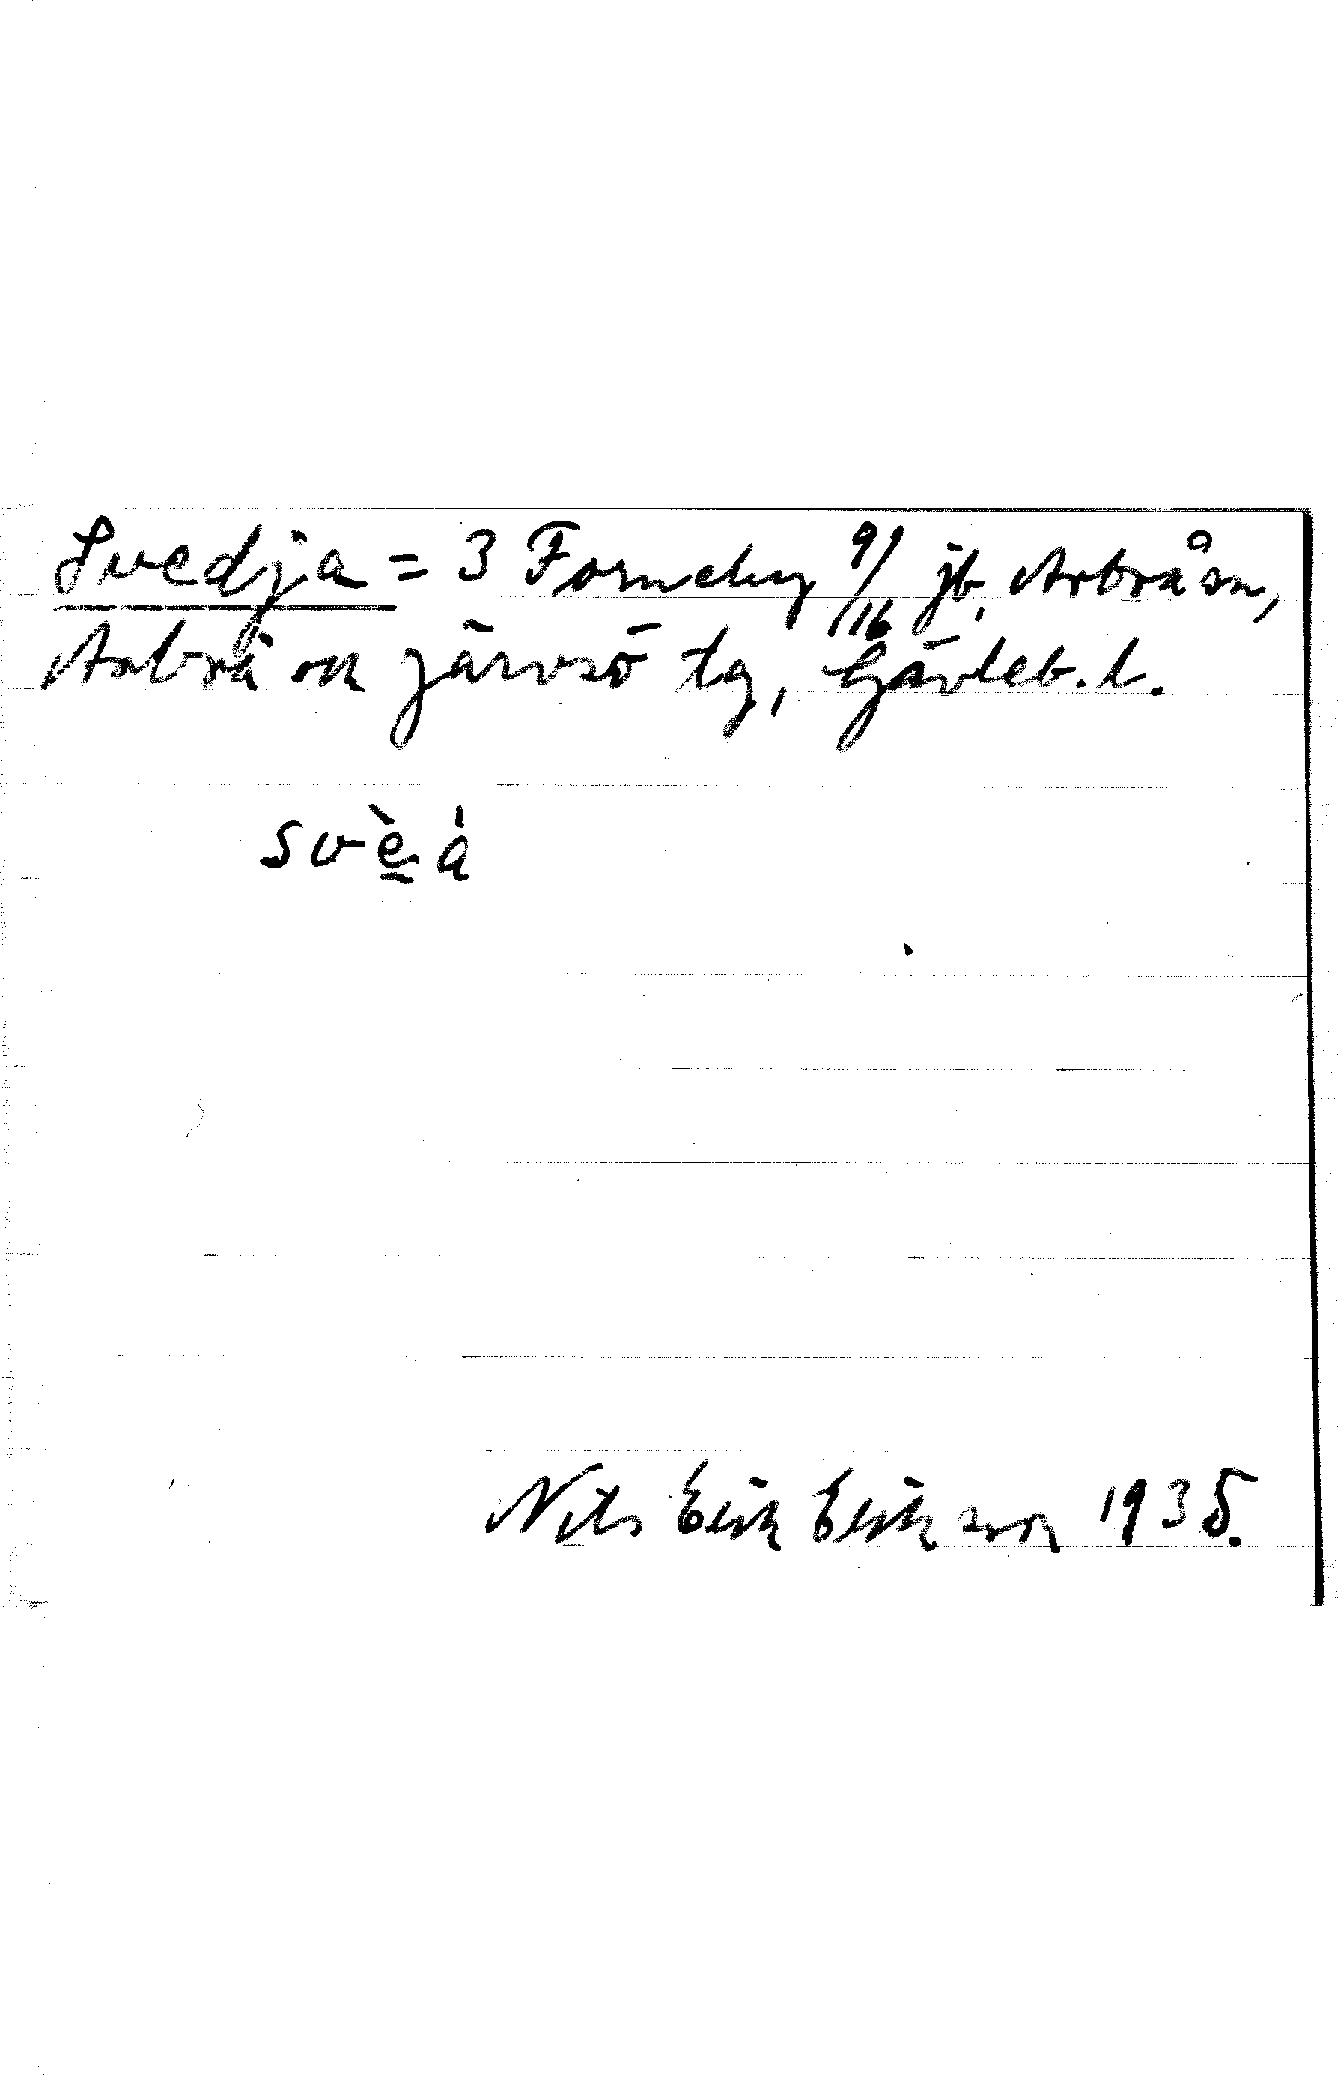 Svedja = 3 Forneby 9/16 jb, Arbrå sn,
Arbrå ok Järvsö tg, Gävleb. l.
svèá
Nils Erik Eriksson 1935.